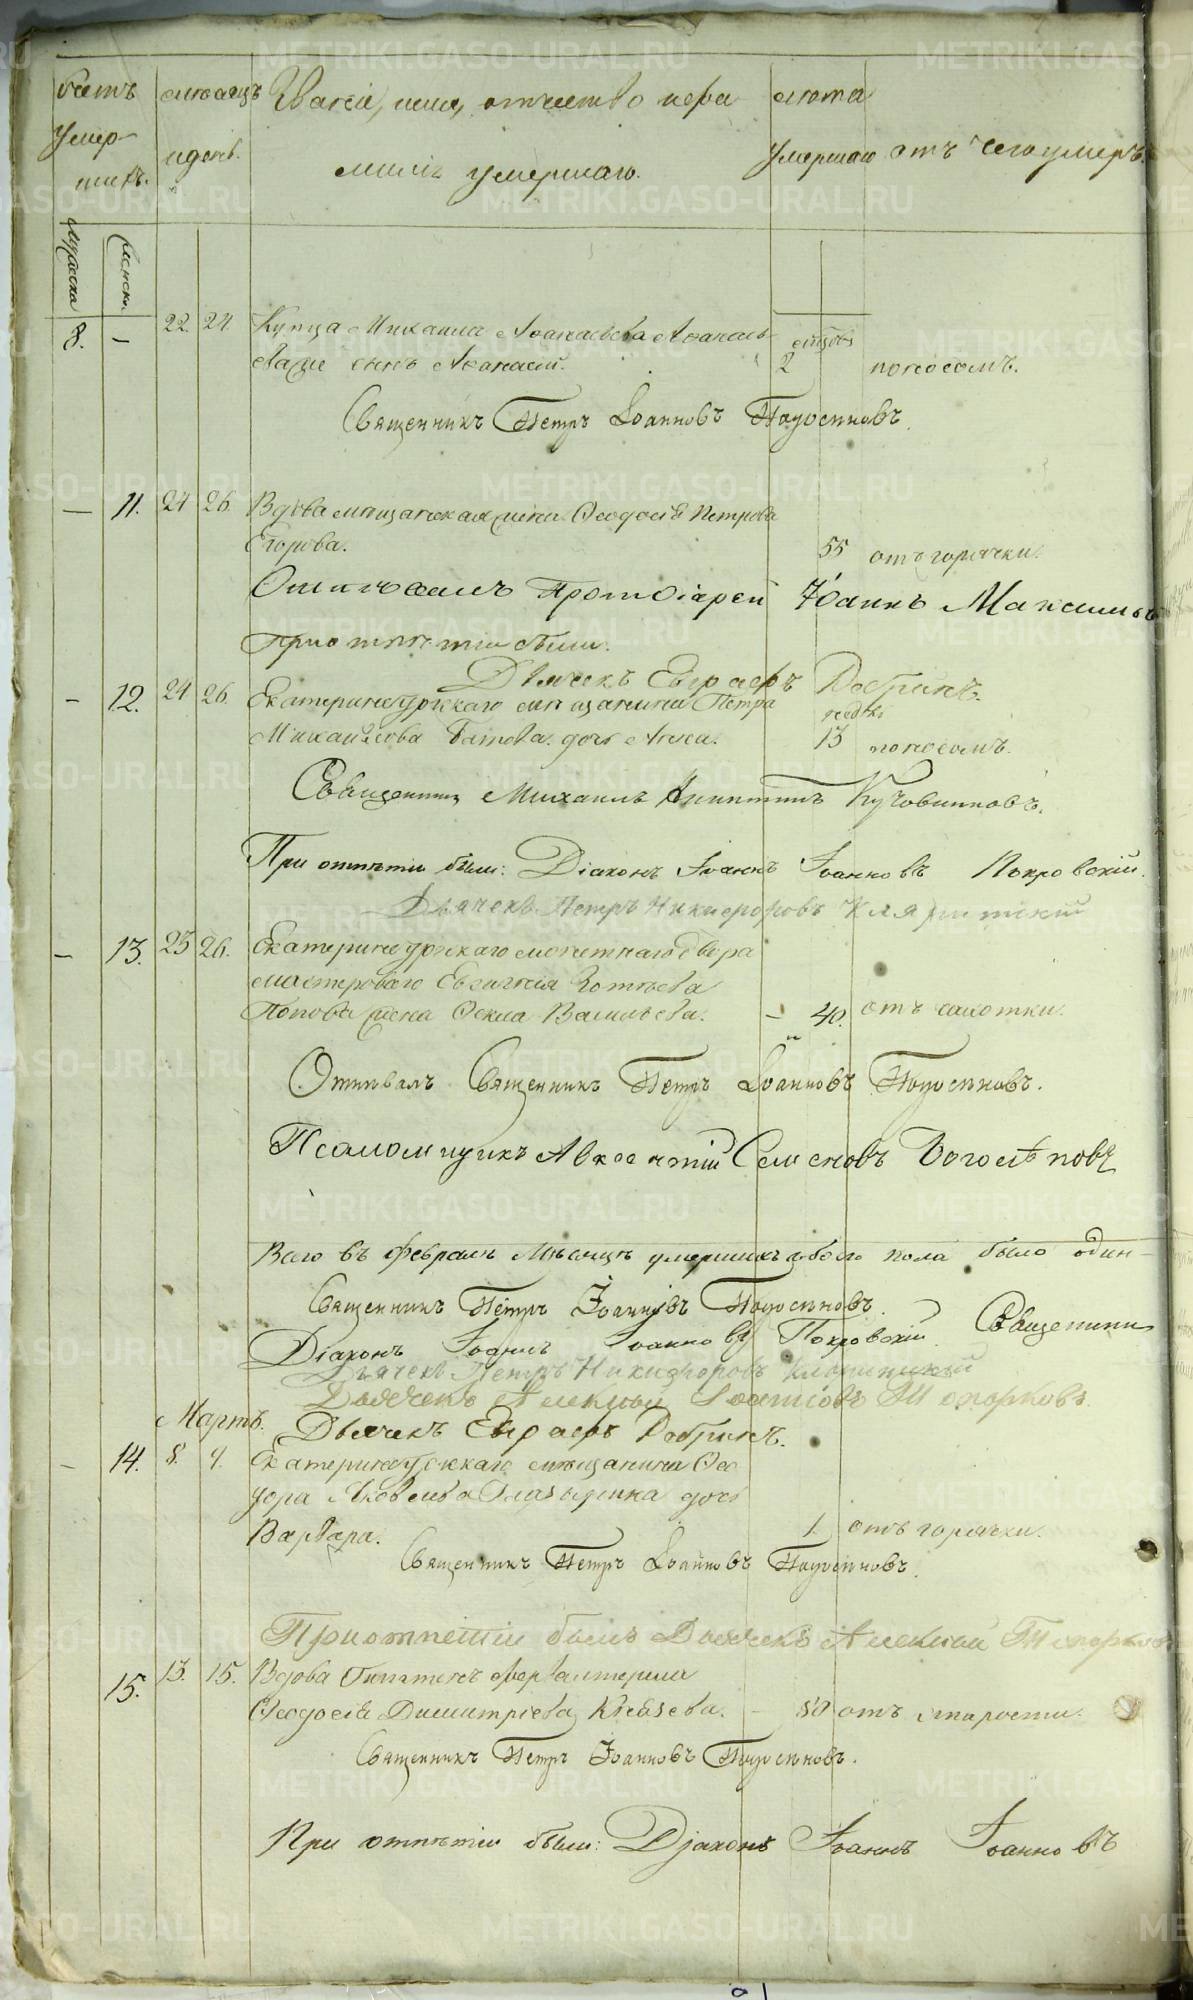 счетъ умер-шихъ.
мѣсяцъ и день.
Званіе, имя, отчество и фа-
милія умершаго.
лѣта умершаго
отъ чего умеръ.
мужеска
женска
8. — 22 24 Купца Михаила Аѳанасьева Аѳанась-
евыхъ сынъ Аѳанасій. 2 мѣсяцовъ поносомъ.
Священникъ Петръ Іоанновъ Подосеновъ.
— 11. 24 26. Вдова мѣщанская жена Ѳеодосія Петрова
Егорова. 55 отъ горячки.
Отпѣвалъ Протоіерей Іоаннъ
При отпѣтіи были:
Дьячекъ Евграфъ Добринъ.
— 12. 24 26. Екатеринбургскаго мѣщанина Петра
Михайлова дочь Анна. недѣль 13 поносомъ.
Священникъ Михаилъ
При отпѣтіи были: Діаконъ Іоаннъ Іоанновъ Покровскій.
Дьячекъ Петръ Никифоровъ
— 13. 25 26. Екатеринбургскаго монетнаго двора
мастероваго Евгенія Зотѣева
Попова жена Ѳекла Васильева. — 40. отъ чахотки.
Отпѣвалъ Священникъ Петръ Іоанновъ Подосеновъ.
Псаломщикъ Авксентій Семеновъ Боголѣповъ
Всего въ Февралѣ Мѣсяцѣ умершихъ обоего пола было один-
Священникъ Петръ Іоанновъ Подосеновъ.
Діаконъ Іоаннъ Іоанновъ Покровскій Священникъ
Дьячекъ Петръ Никифоровъ
Дьячекъ Алексѣй Топорковъ.
Мартъ. Дьячекъ Евграфъ Добринъ.
— 14. 8. 9. Екатеринбургскаго мѣщанина Ѳео
дора Яковлева дочь
Варвара. 1. отъ горячки.
Священникъ Петръ Іоанновъ Подосеновъ.
При отпѣтіи былъ Дьячекъ Алексѣй Топорковъ
15. 13. 15. Вдова
Ѳеодосія Димитріева Князева. — 80 отъ старости.
Священникъ Петръ Іоанновъ Подосеновъ.
При отпѣтіи были: Діаконъ Іоаннъ Іоанновъ
METRIKI.GASO-URAL.RU